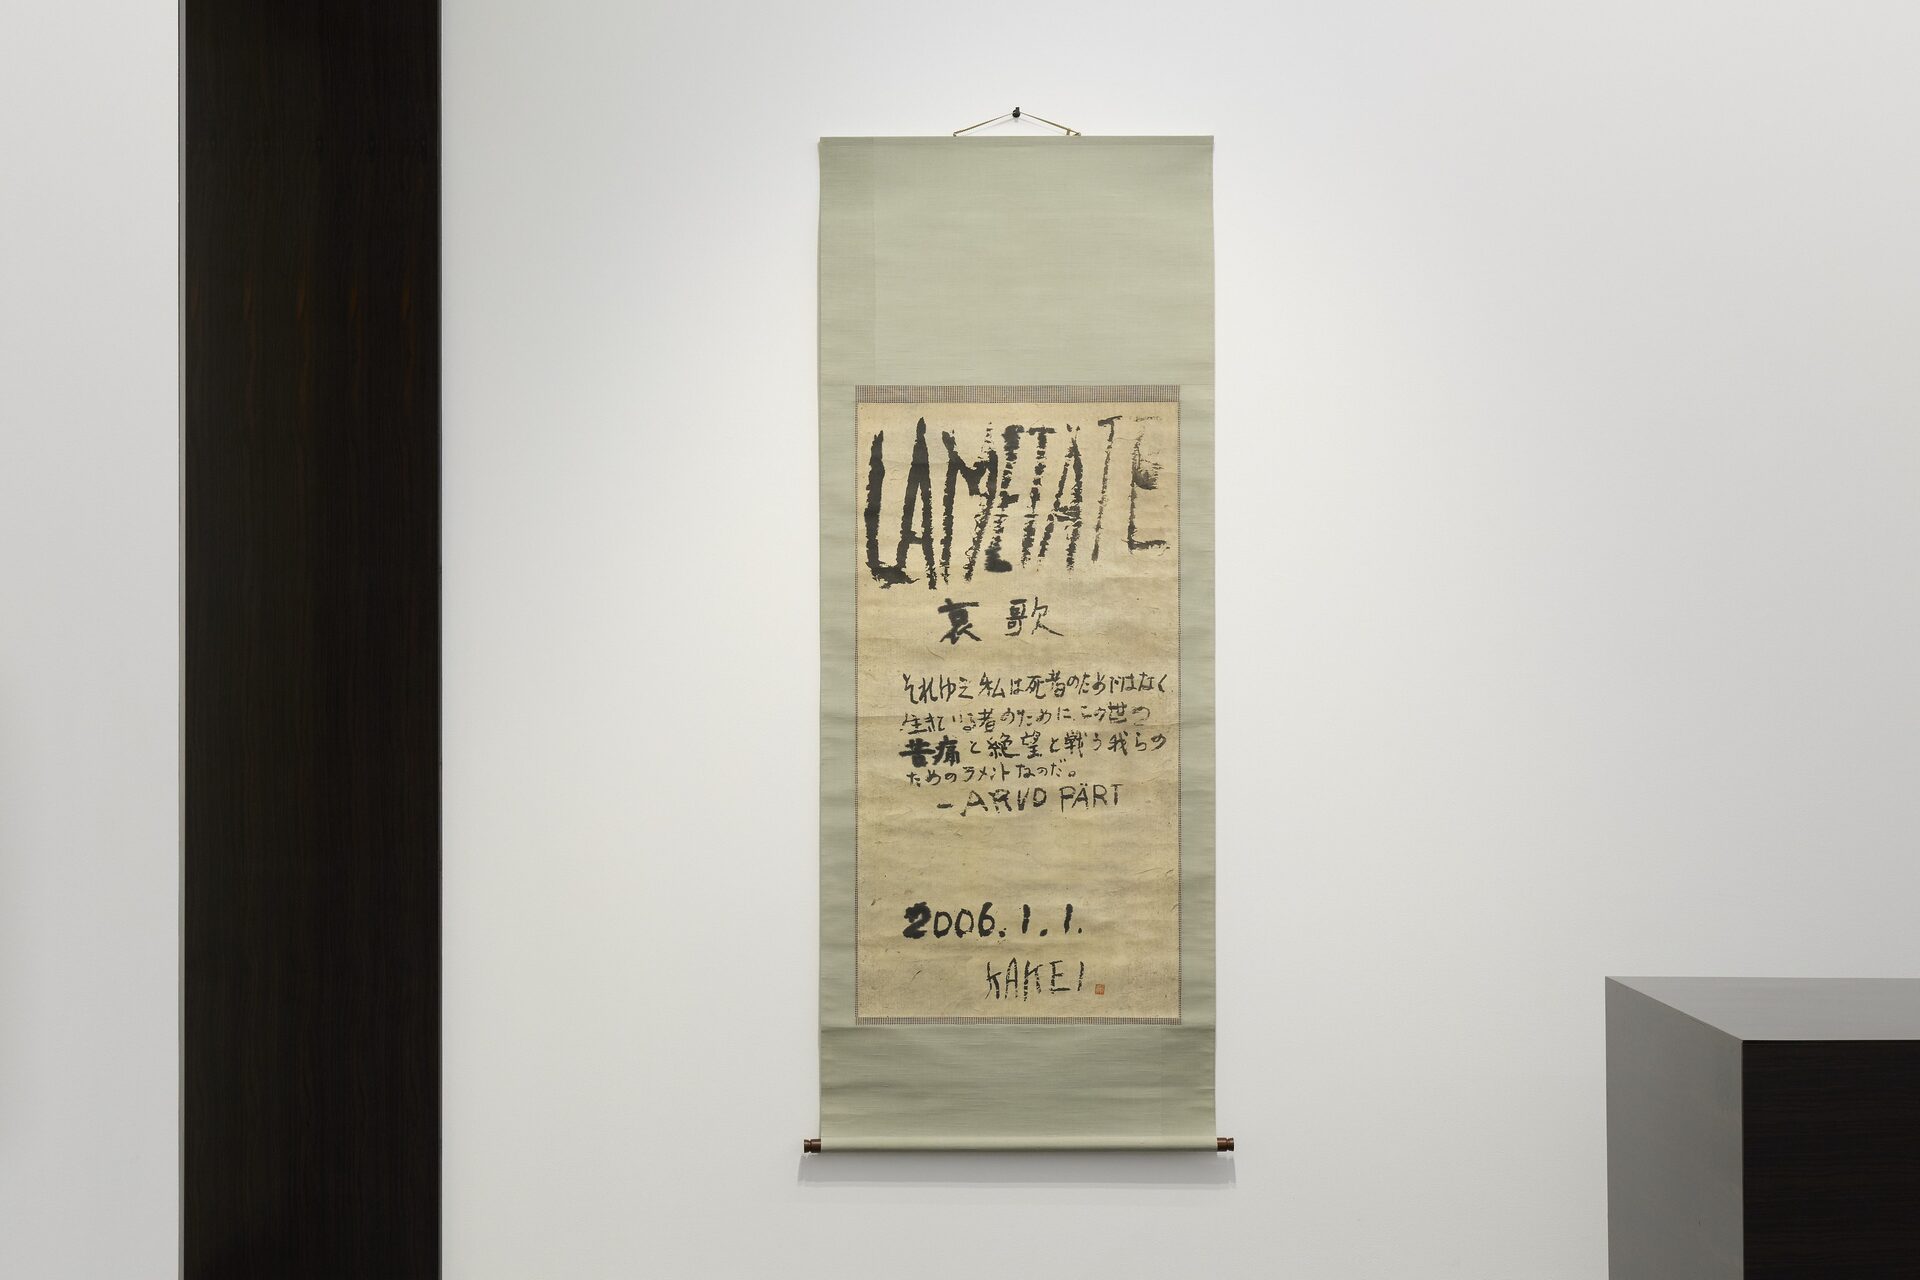 LAMETÄTE
哀歌
それゆえ私は死者のためではなく
生きている者のために、この世の
苦痛と絶望と戦う我らの
ためのラメントなのだ。
-ARVO PÄRT
2006.1.1.
KAKEI